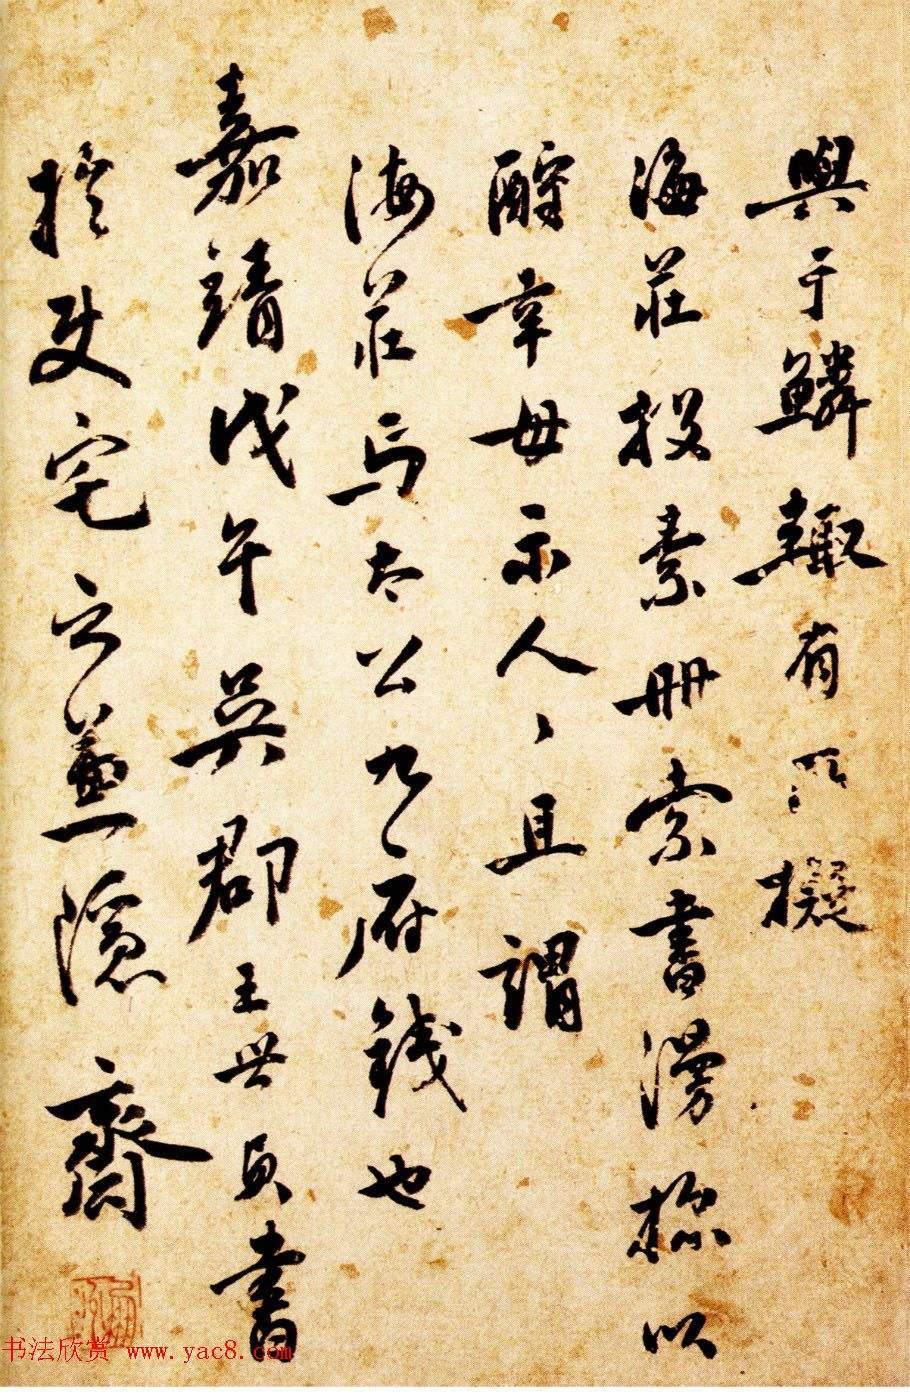 與于鱗輒有所擬
海莊投素册索書漫標以
酬幸毋示人人且謂
海莊与太公九府錢也
嘉靖戊午吳郡王世貞書
於吏宅之蒹隱齋
书法欣赏 www.yac8.com